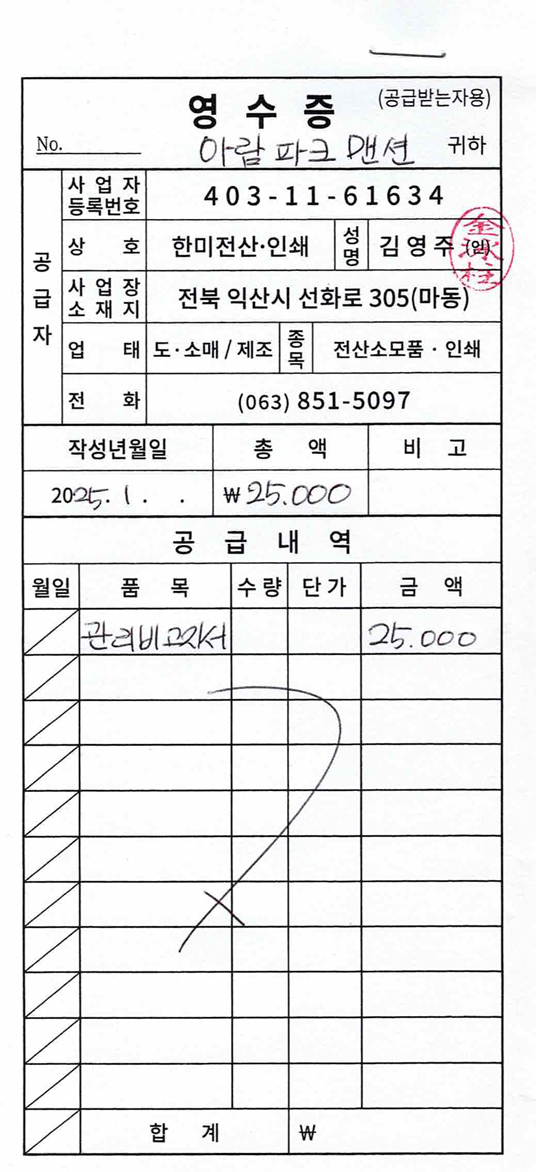 영 수 증 (공급받는자용)
No. 아람파크맨션 귀하
공급자
사업자등록번호 403-11-61634
상 호 한미전산·인쇄 성명 김영주 (인)
사업장소재지 전북 익산시 선화로 305(마동)
업 태 도·소매/제조 종목 전산소모품·인쇄
전 화 (063) 851-5097
작성년월일 총 액 비 고
2025. 1. . ₩25.000
공 급 내 역
월일 품 목 수량 단가 금 액
관리비고지서 25.000
합 계 ₩